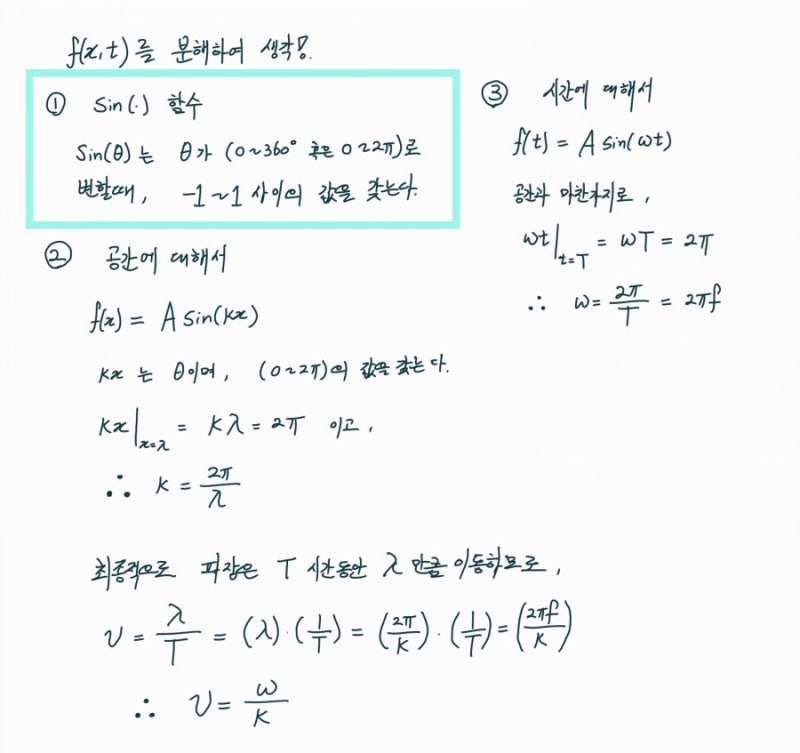 f(x,t)를 분해하여 생각!
① Sin(·) 함수
Sin(θ)는 θ가 (0~360° 혹은 0~2π)로
변할때, -1~1 사이의 값을 갖는다.
② 공간에 대해서
f(x) = A sin(kx)
kx 는 θ이며, (0~2π)의 값을 갖는다.
kx|x=λ = kλ = 2π 이고,
∴ k = 2π/λ
③ 시간에 대해서
f(t) = A sin(ωt)
공간과 마찬가지로,
ωt|t=T = ωT = 2π
∴ ω = 2π/T = 2πf
최종적으로 파장은 T 시간동안 λ 만큼 이동하므로,
v = λ/T = (λ)·(1/T) = (2π/k)·(1/T) = (2πf/k)
∴ v = ω/k